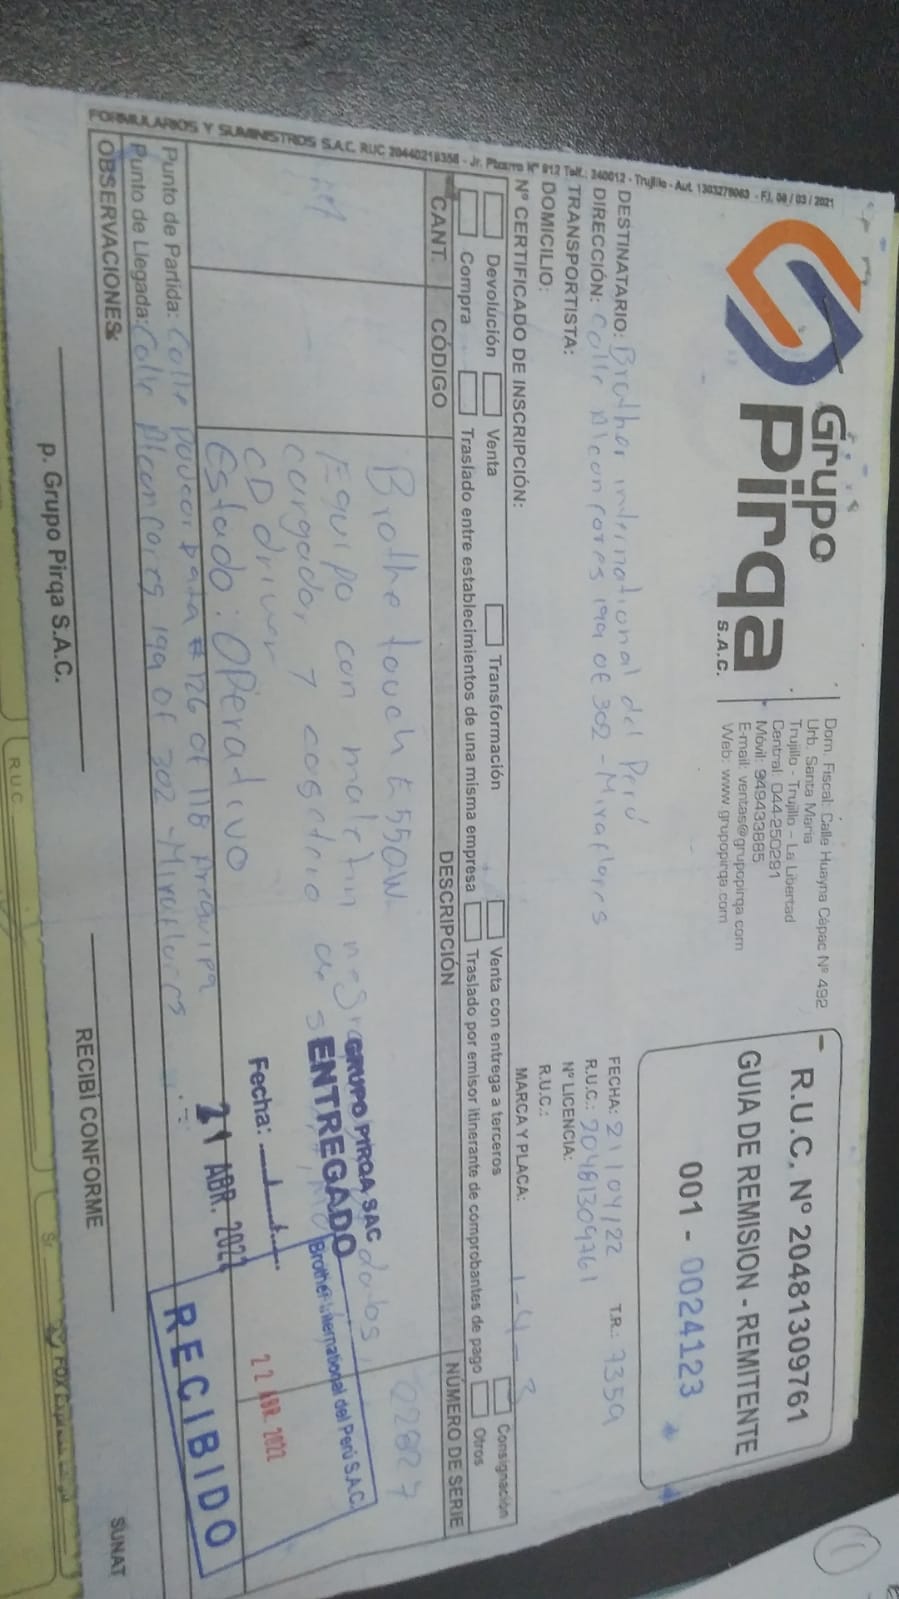 Grupo
Pirqa
S.A.C.
Dom. Fiscal: Calle Huayna Cápac Nº 492
Urb. Santa María
Trujillo - Trujillo - La Libertad
Central: 044-250291
Móvil: 949433885
E-mail: ventas@grupopirqa.com
Web: www.grupopirqa.com
R.U.C. Nº 20481309761
GUIA DE REMISION - REMITENTE
001 - 0024123
DESTINATARIO: Brother international del Perú
FECHA: 21/04/22 T.R.: 7359
DIRECCIÓN: Calle Alcanfores 199 of 302 - Miraflores
R.U.C.: 20481309761
TRANSPORTISTA:
Nº LICENCIA:
DOMICILIO:
R.U.C.:
Nº CERTIFICADO DE INSCRIPCIÓN:
MARCA Y PLACA: 1-4-3
Devolución Venta Transformación Venta con entrega a terceros Consignación
Compra Traslado entre establecimientos de una misma empresa Traslado por emisor itinerante de comprobantes de pago Otros
CANT. CÓDIGO DESCRIPCIÓN NÚMERO DE SERIE
Brothe touch E550W 02827
Equipo con maletin negro
cargador y casetera de datos
CD driver
Estado: Operativo
GRUPO PIRQA SAC
ENTREGADO
Fecha:
21 ABR. 2022
Brother International del Perú S.A.C.
22 ABR. 2022
RECIBIDO
Punto de Partida: Calle # 126 of 118 Arequipa
Punto de Llegada: Calle Alcanfores 199 of 302 Miraflores
OBSERVACIONES:
p. Grupo Pirqa S.A.C.
RECIBÍ CONFORME
SUNAT
FORMULARIOS Y SUMINISTROS S.A.C. RUC 20440218358 - Jr. Pizarro Nº 912 Telf.: 240012 - Trujillo - Aut. 1303278063 - F.I. 08 / 03 / 2021
R.U.C.
Sr.